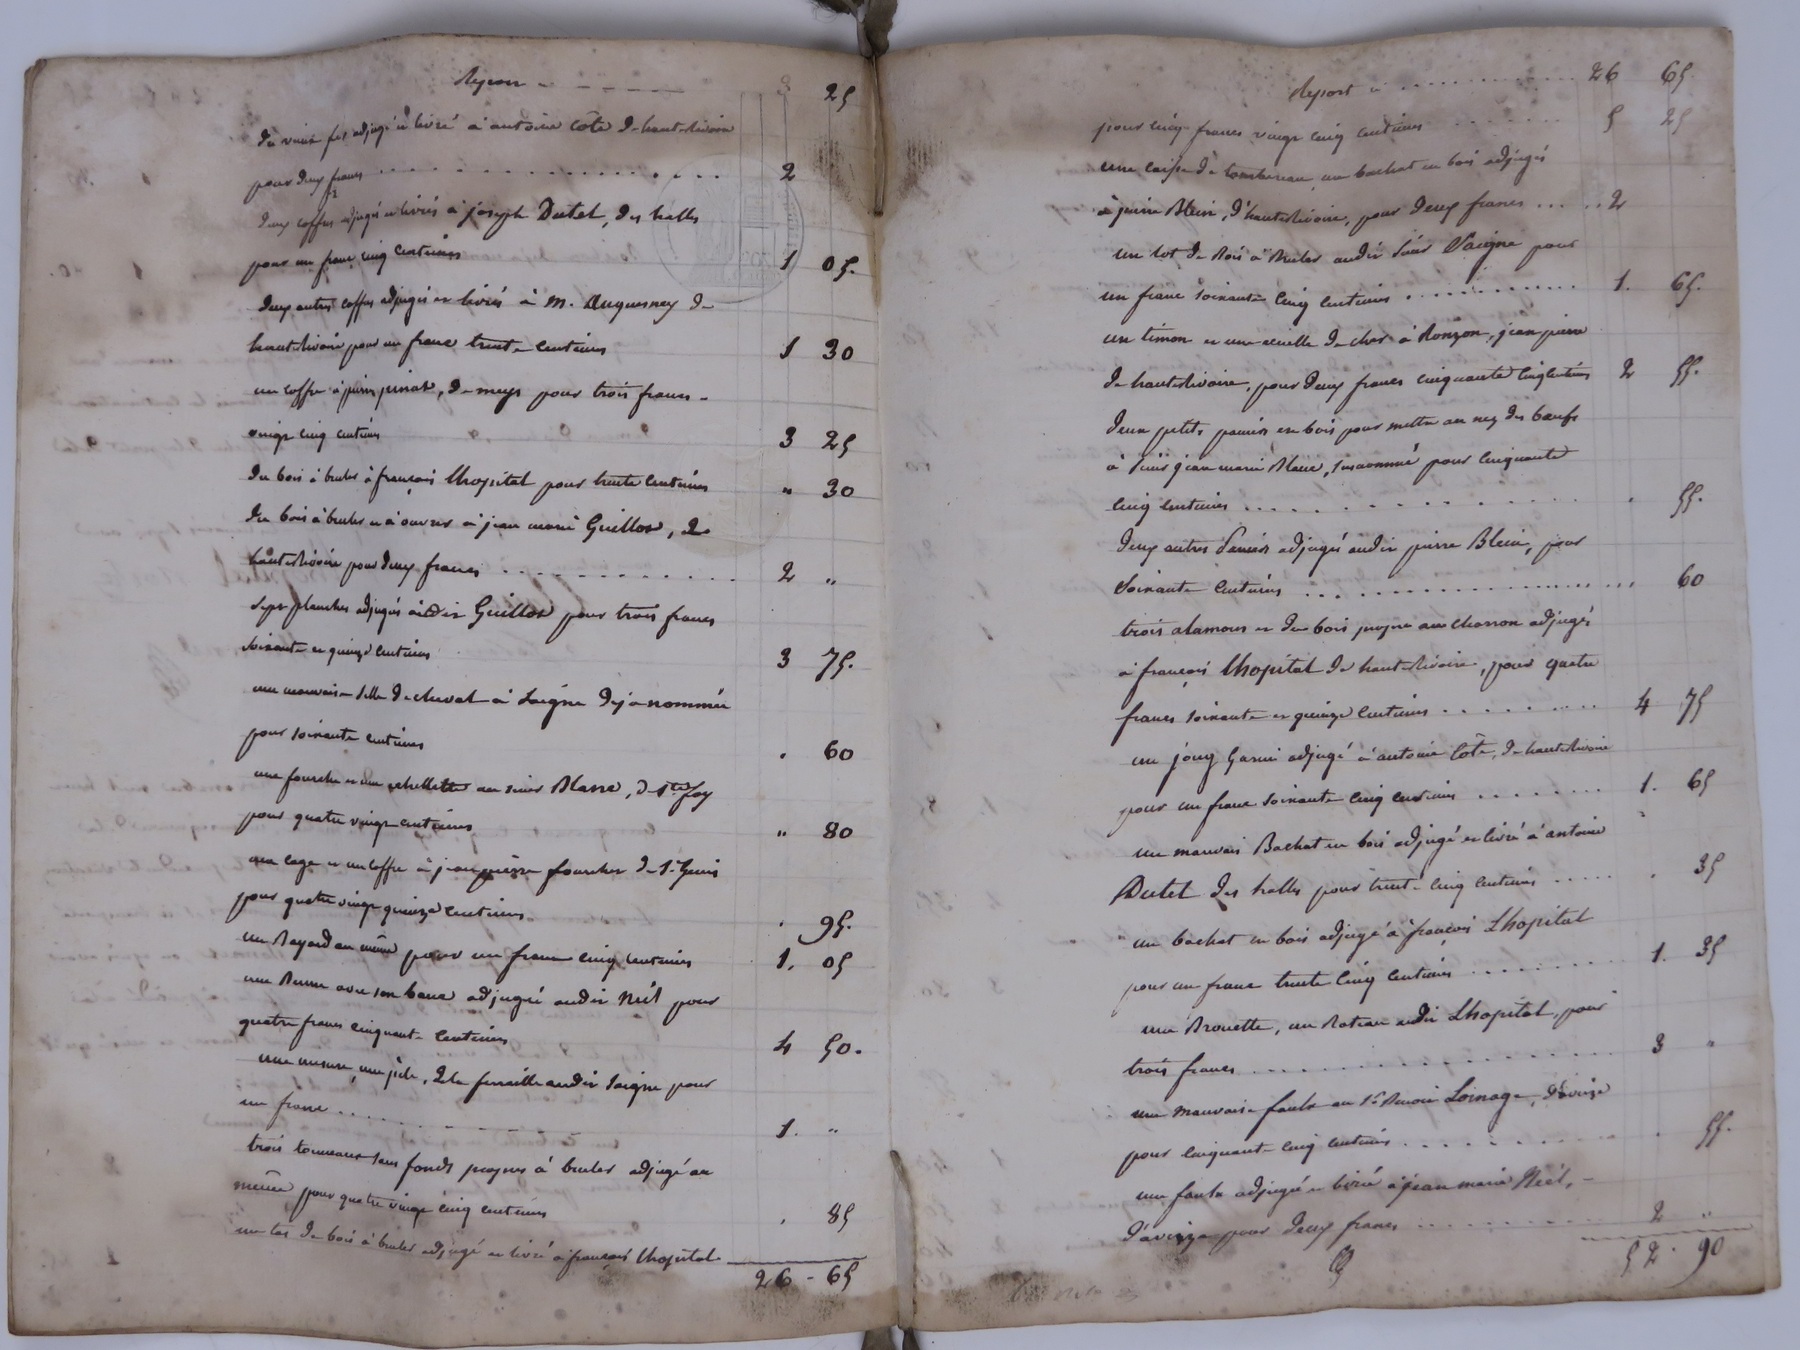 Report 3 25
du vieux fer adjugé et livré à antoine Côte de hauterivoire
pour deux francs 2
deux coffres adjugés et livrés à joseph Dutel, des halles
pour un franc cinq centimes 1 05.
deux autres coffres adjugés et livrés à M. Duquesney de
hauterivoire pour un franc trente centimes 1 30
un coffre à pierre pinat, de meys pour trois francs
vingt cinq centimes 3 25
du bois à bruler à françois Lhopital pour trente centimes " 30
du bois à bruler et à ouvrer à jean marie Guillot, de
hauterivoire pour deux francs 2 "
Sept planches adjugées audit Guillot pour trois francs
soixante et quinze centimes 3 75.
une mauvaise selle de cheval à Saigne déjà nommé
pour soixante centimes . 60
une fourche et une echellette au sieur Blanc, de Ste foy
pour quatre vingt centimes " 80
une cage et un coffre à jean pierre fourcher de St Genis
pour quatre vingt quinze centimes . 95.
un Rayard au même pour un franc cinq centimes 1. 05
une Benne avec son banc adjugée audit Niél pour
quatre francs cinquante centimes 4 50.
une mesure, une pile, de la ferraille audit Saigne pour
un franc 1. "
trois tonneaux sans fonds propres à bruler adjugé au
même pour quatre vingt cinq centimes . 85
un tas de bois à bruler adjugé et livré à françois Lhopital
26 - 65
Report 26 65
pour cinq francs vingt cinq centimes 5 25
une caisse de tombereau, un bachat en bois adjugés
à pierre Blein, d'hauterivoire, pour deux francs 2
un lot de Bois à Bruler audit Sieur Saigne pour
un franc soixante cinq centimes 1. 65.
un timon et une de char à Ronzon, jean pierre
de hauterivoire, pour deux francs cinquante cinq centimes 2 55.
deux petits paniers en bois pour mettre au nez des bœufs
à Sieur jean marie Blanc, surnommé pour cinquante
cinq centimes . 55.
deux autres Paniers adjugés audit pierre Blein, pour
soixante centimes 60
trois alamons et du bois propre au charron adjugés
à françois Lhopital de hauterivoire, pour quatre
francs soixante et quinze centimes 4 75
un joug Garni adjugé à antoine Côte, de hauterivoire
pour un franc soixante cinq centimes 1. 65
un mauvais Bachat en bois adjugé et livré à antoine
Dutel des halles pour trente cinq centimes . 35
un bachat en bois adjugé à françois Lhopital
pour un franc trente cinq centimes 1. 35
une Brouette, un Rateau audit Lhopital, pour
trois francs 3 "
une mauvaise faulx au Sr Benoit Loinage, d'aveize
pour cinquante cinq centimes . 55.
une faulx adjugée et livrée à jean marie Niél,
d'aveize pour deux francs 2 "
52. 90